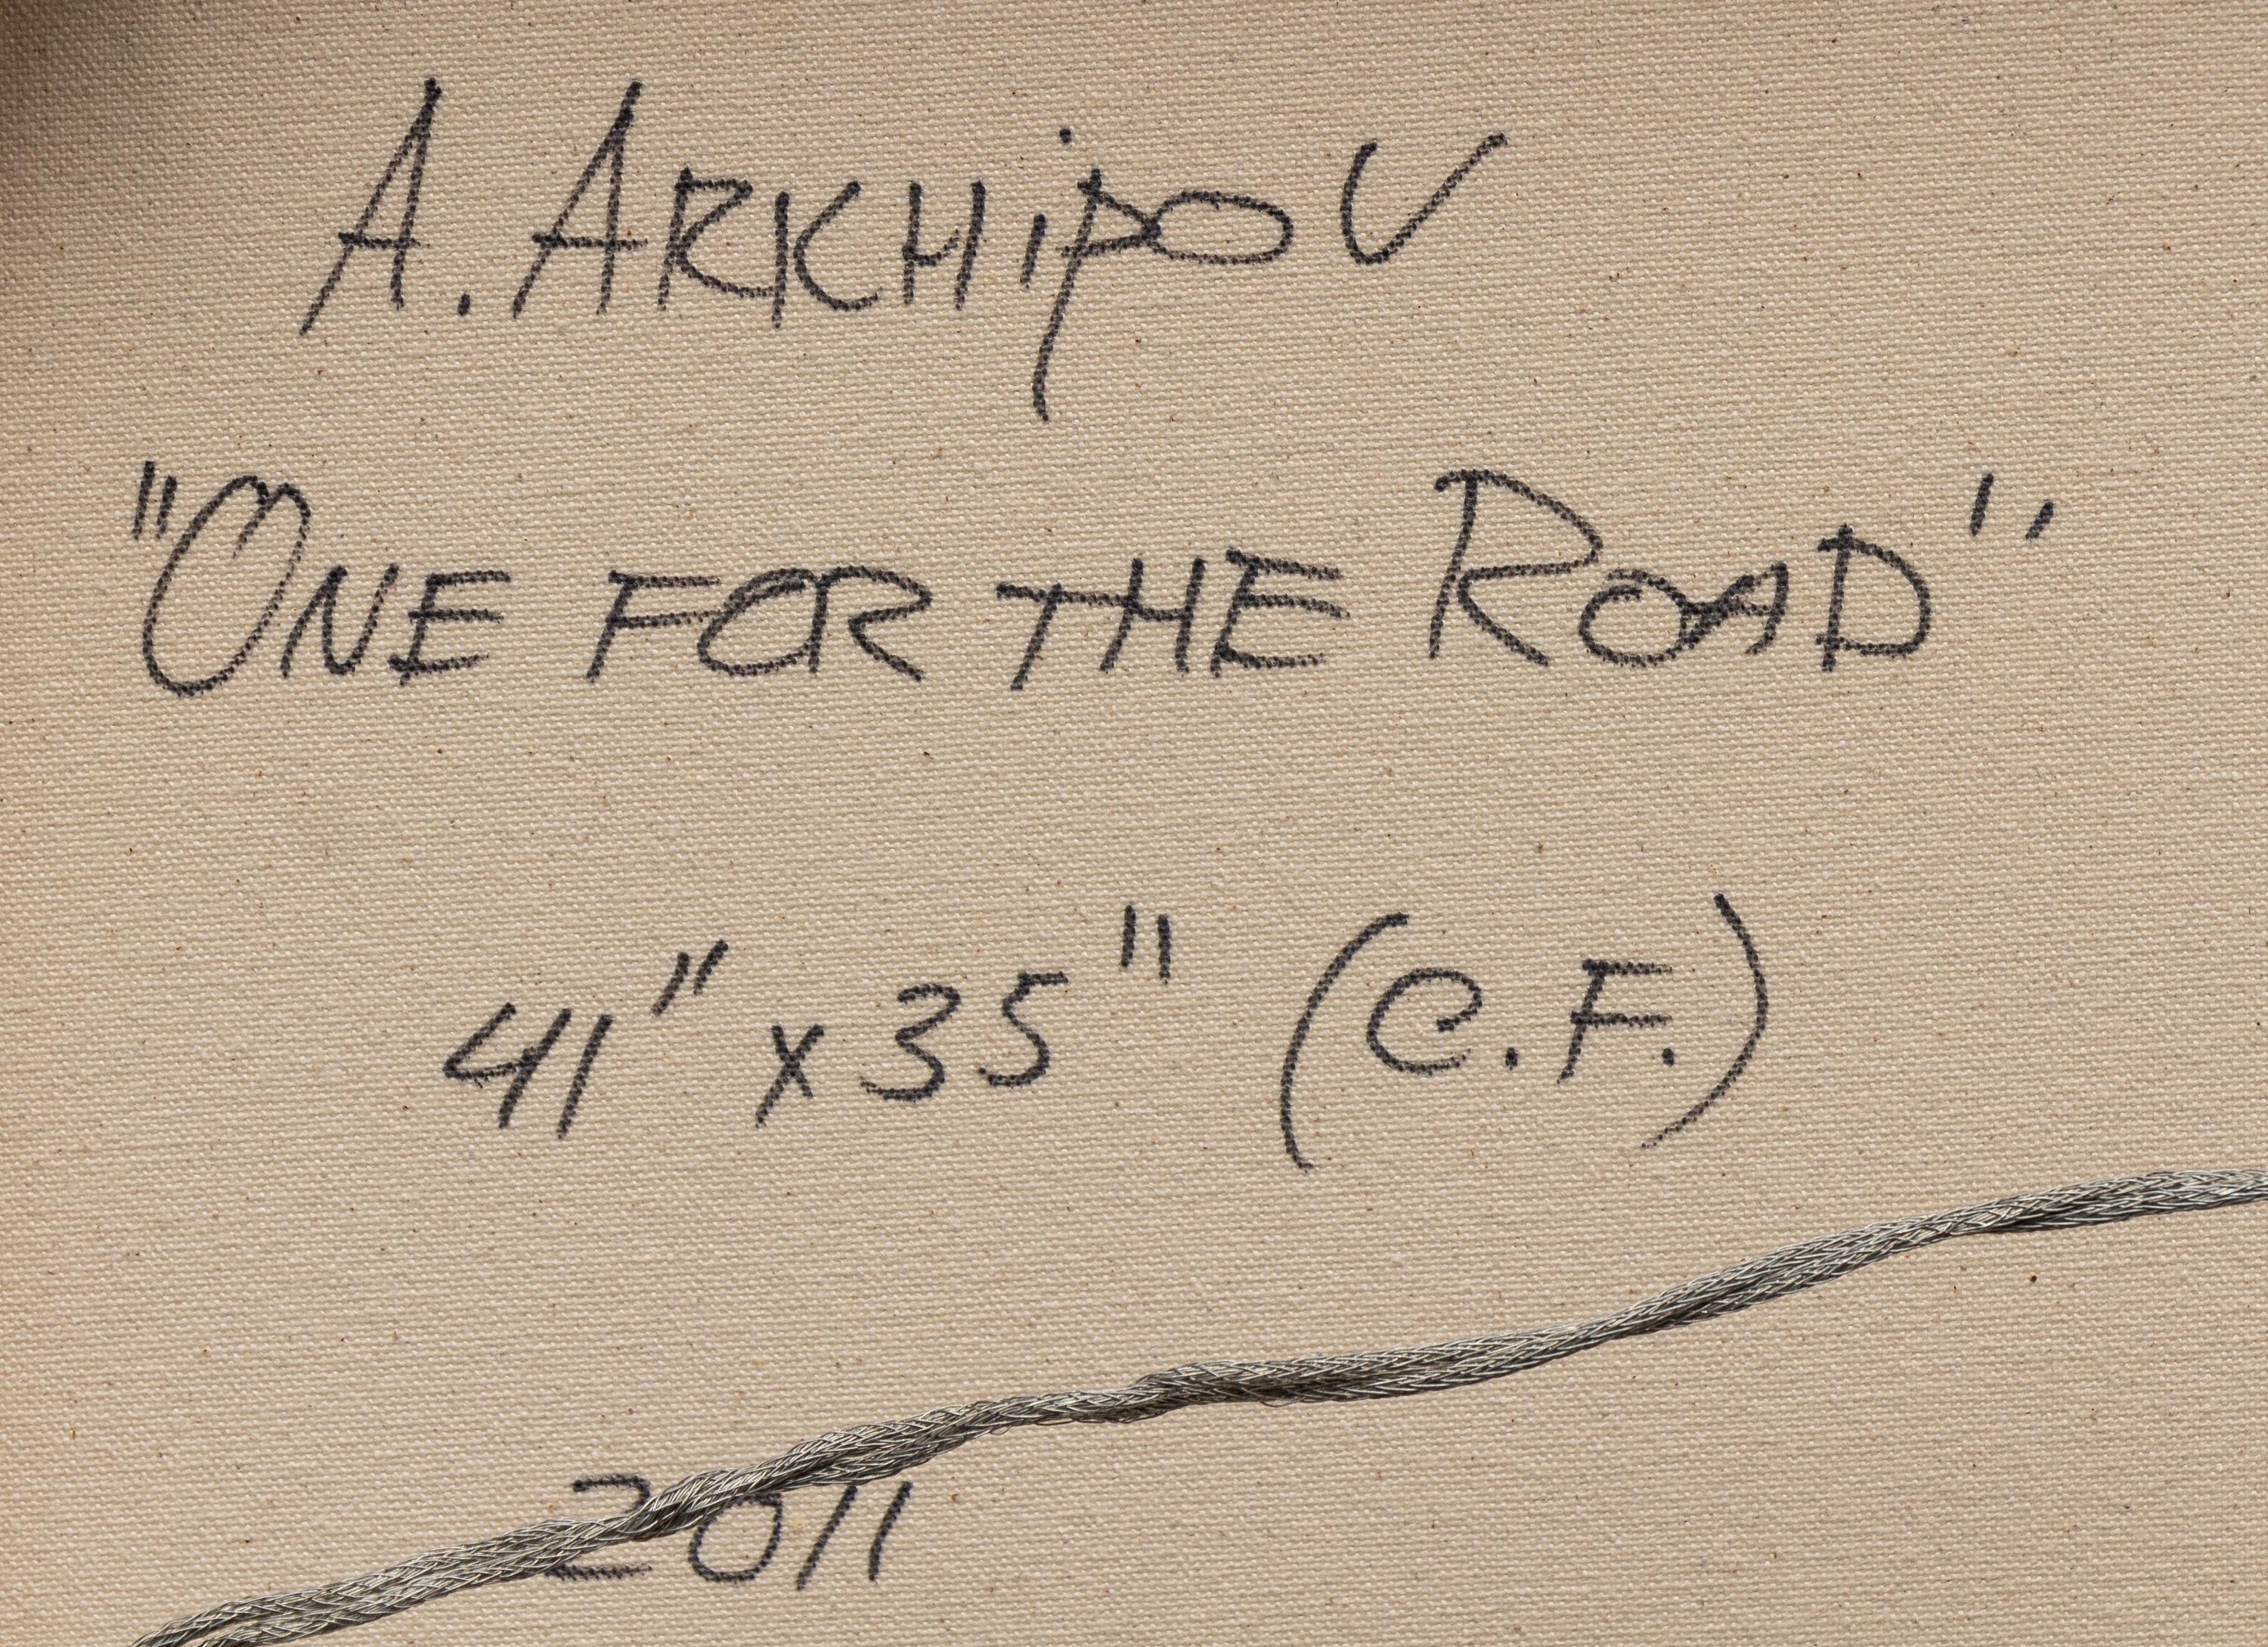 A. ARKHiPOV
"ONE FOR THE ROAD"
41" x 35" (C.F.)
2011